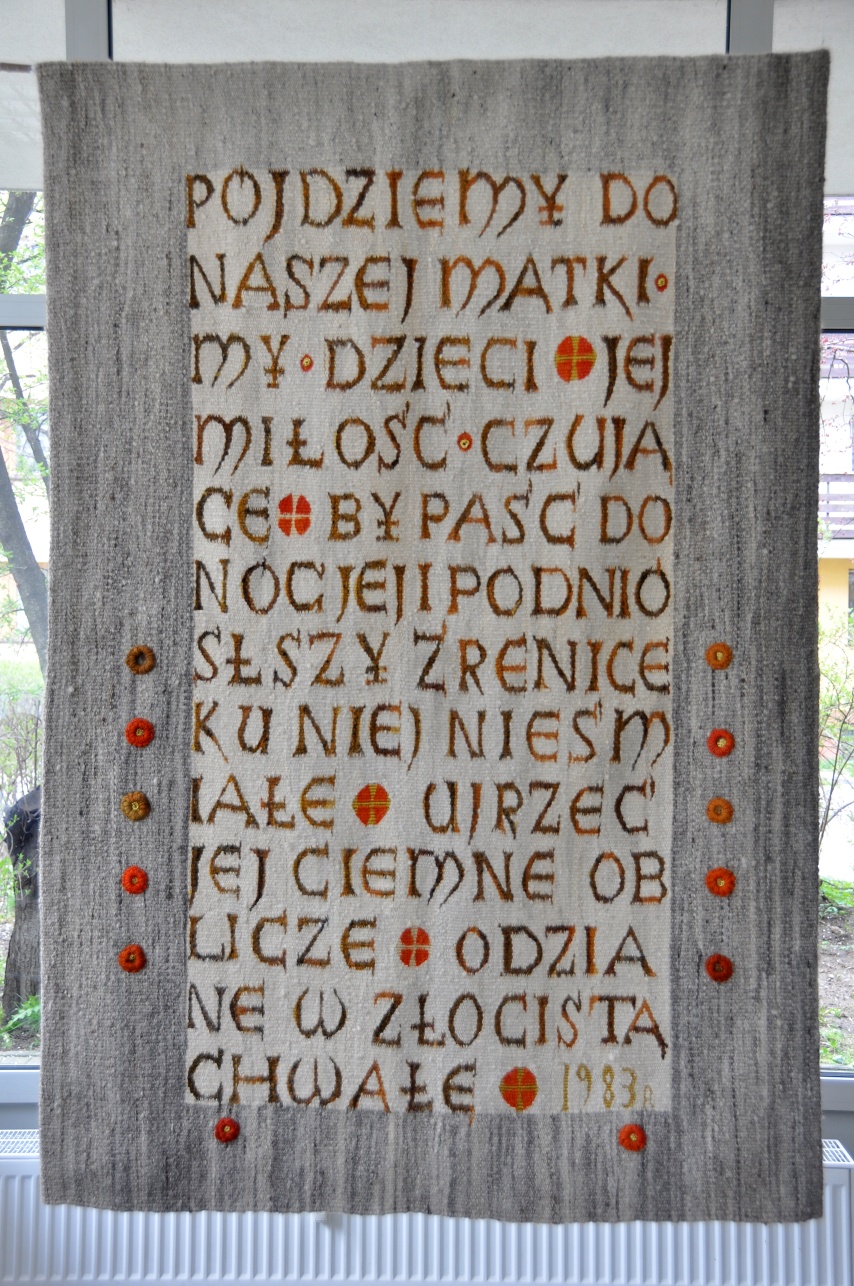 PÓJDZIEMY DO
NASZEJ MATKI •
MY • DZIECI JEJ
MIŁOŚĆ • CZUJĄ
CE BY PAŚĆ DO
NÓG JEJ I PODNIÓ
SŁSZY ŹRENICE
KU NIEJ NIEŚM
IAŁE UJRZEĆ
JEJ CIEMNE OB
LICZE ODZIA
NE W ZŁOCISTĄ
CHWAŁĘ 1983R